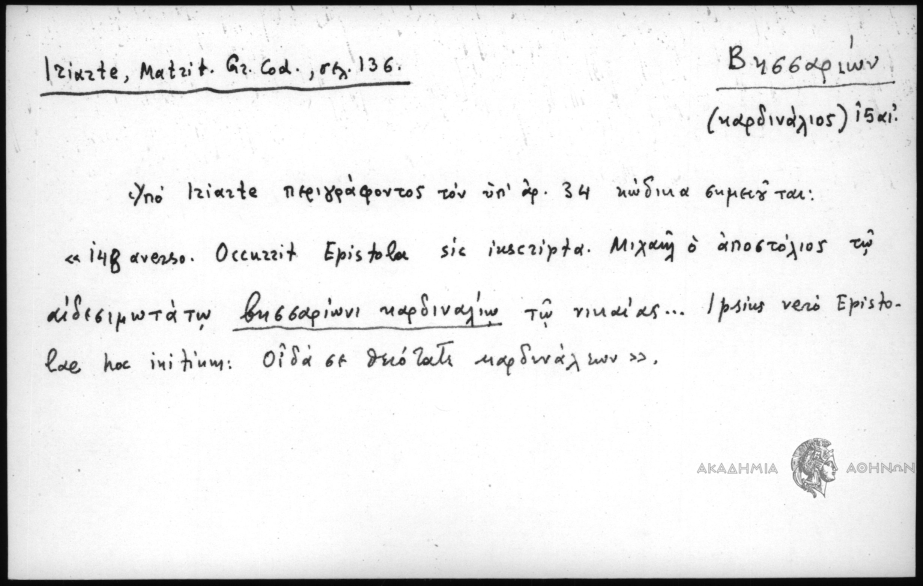 Iriarte, Matrit. Gr. Cod., σελ. 136.
Βησσαρίων
(καρδινάλιος) ι5 αἰ.
Ὑπό Iriarte περιγράφοντος τόν ὑπ' ἀρ. 34 κώδικα σημειοῦται:
« 148 averso. Occurrit Epistola sic inscripta. Μιχαὴλ ὁ ἀποστόλιος τῷ
αἰδεσιμωτάτῳ βησσαρίωνι καρδιναλίῳ τῷ νικαίας... Ipsius vero Episto-
lae hoc initium: Οἶδά σε θειότατε καρδινάλεων ».
ΑΚΑΔΗΜΙΑ ΑΘΗΝΩΝ